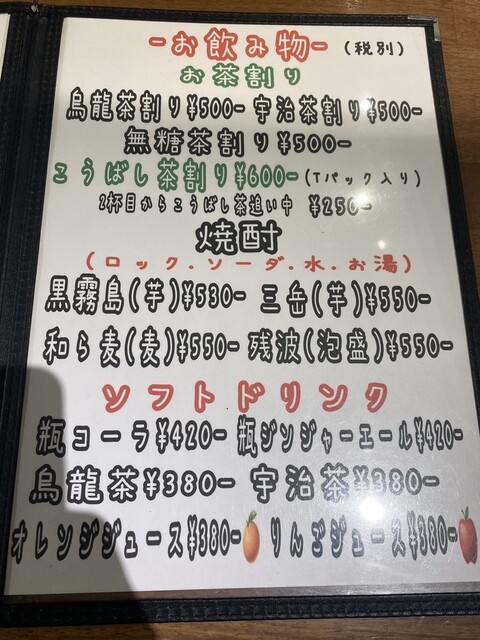 -お飲み物- (税別)
お茶割り
烏龍茶割り¥500- 宇治茶割り¥500-
無糖茶割り¥500-
こうばし茶割り¥600-(Tパック入り)
2杯目からこうばし茶追い中 ¥250-
焼酎
(ロック.ソーダ.水.お湯)
黒霧島(芋)¥530- 三岳(芋)¥550-
和ら麦(麦)¥550- 残波(泡盛)¥550-
ソフトドリンク
瓶コーラ¥420- 瓶ジンジャーエール¥420-
烏龍茶¥380- 宇治茶¥380-
オレンジジュース¥380- りんごジュース¥380-